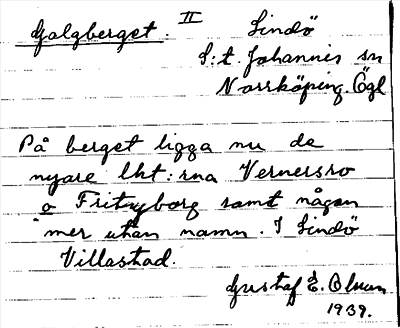 Galgberget. II Lindö
S:t. Johannis sn
Norrköping. Ögl
På berget ligga nu de
nyare lht:rna Vernersro
o Frityborg samt någon
mer utan namn. I Lindö
Villastad.
Gustaf E. Olsson
1939.